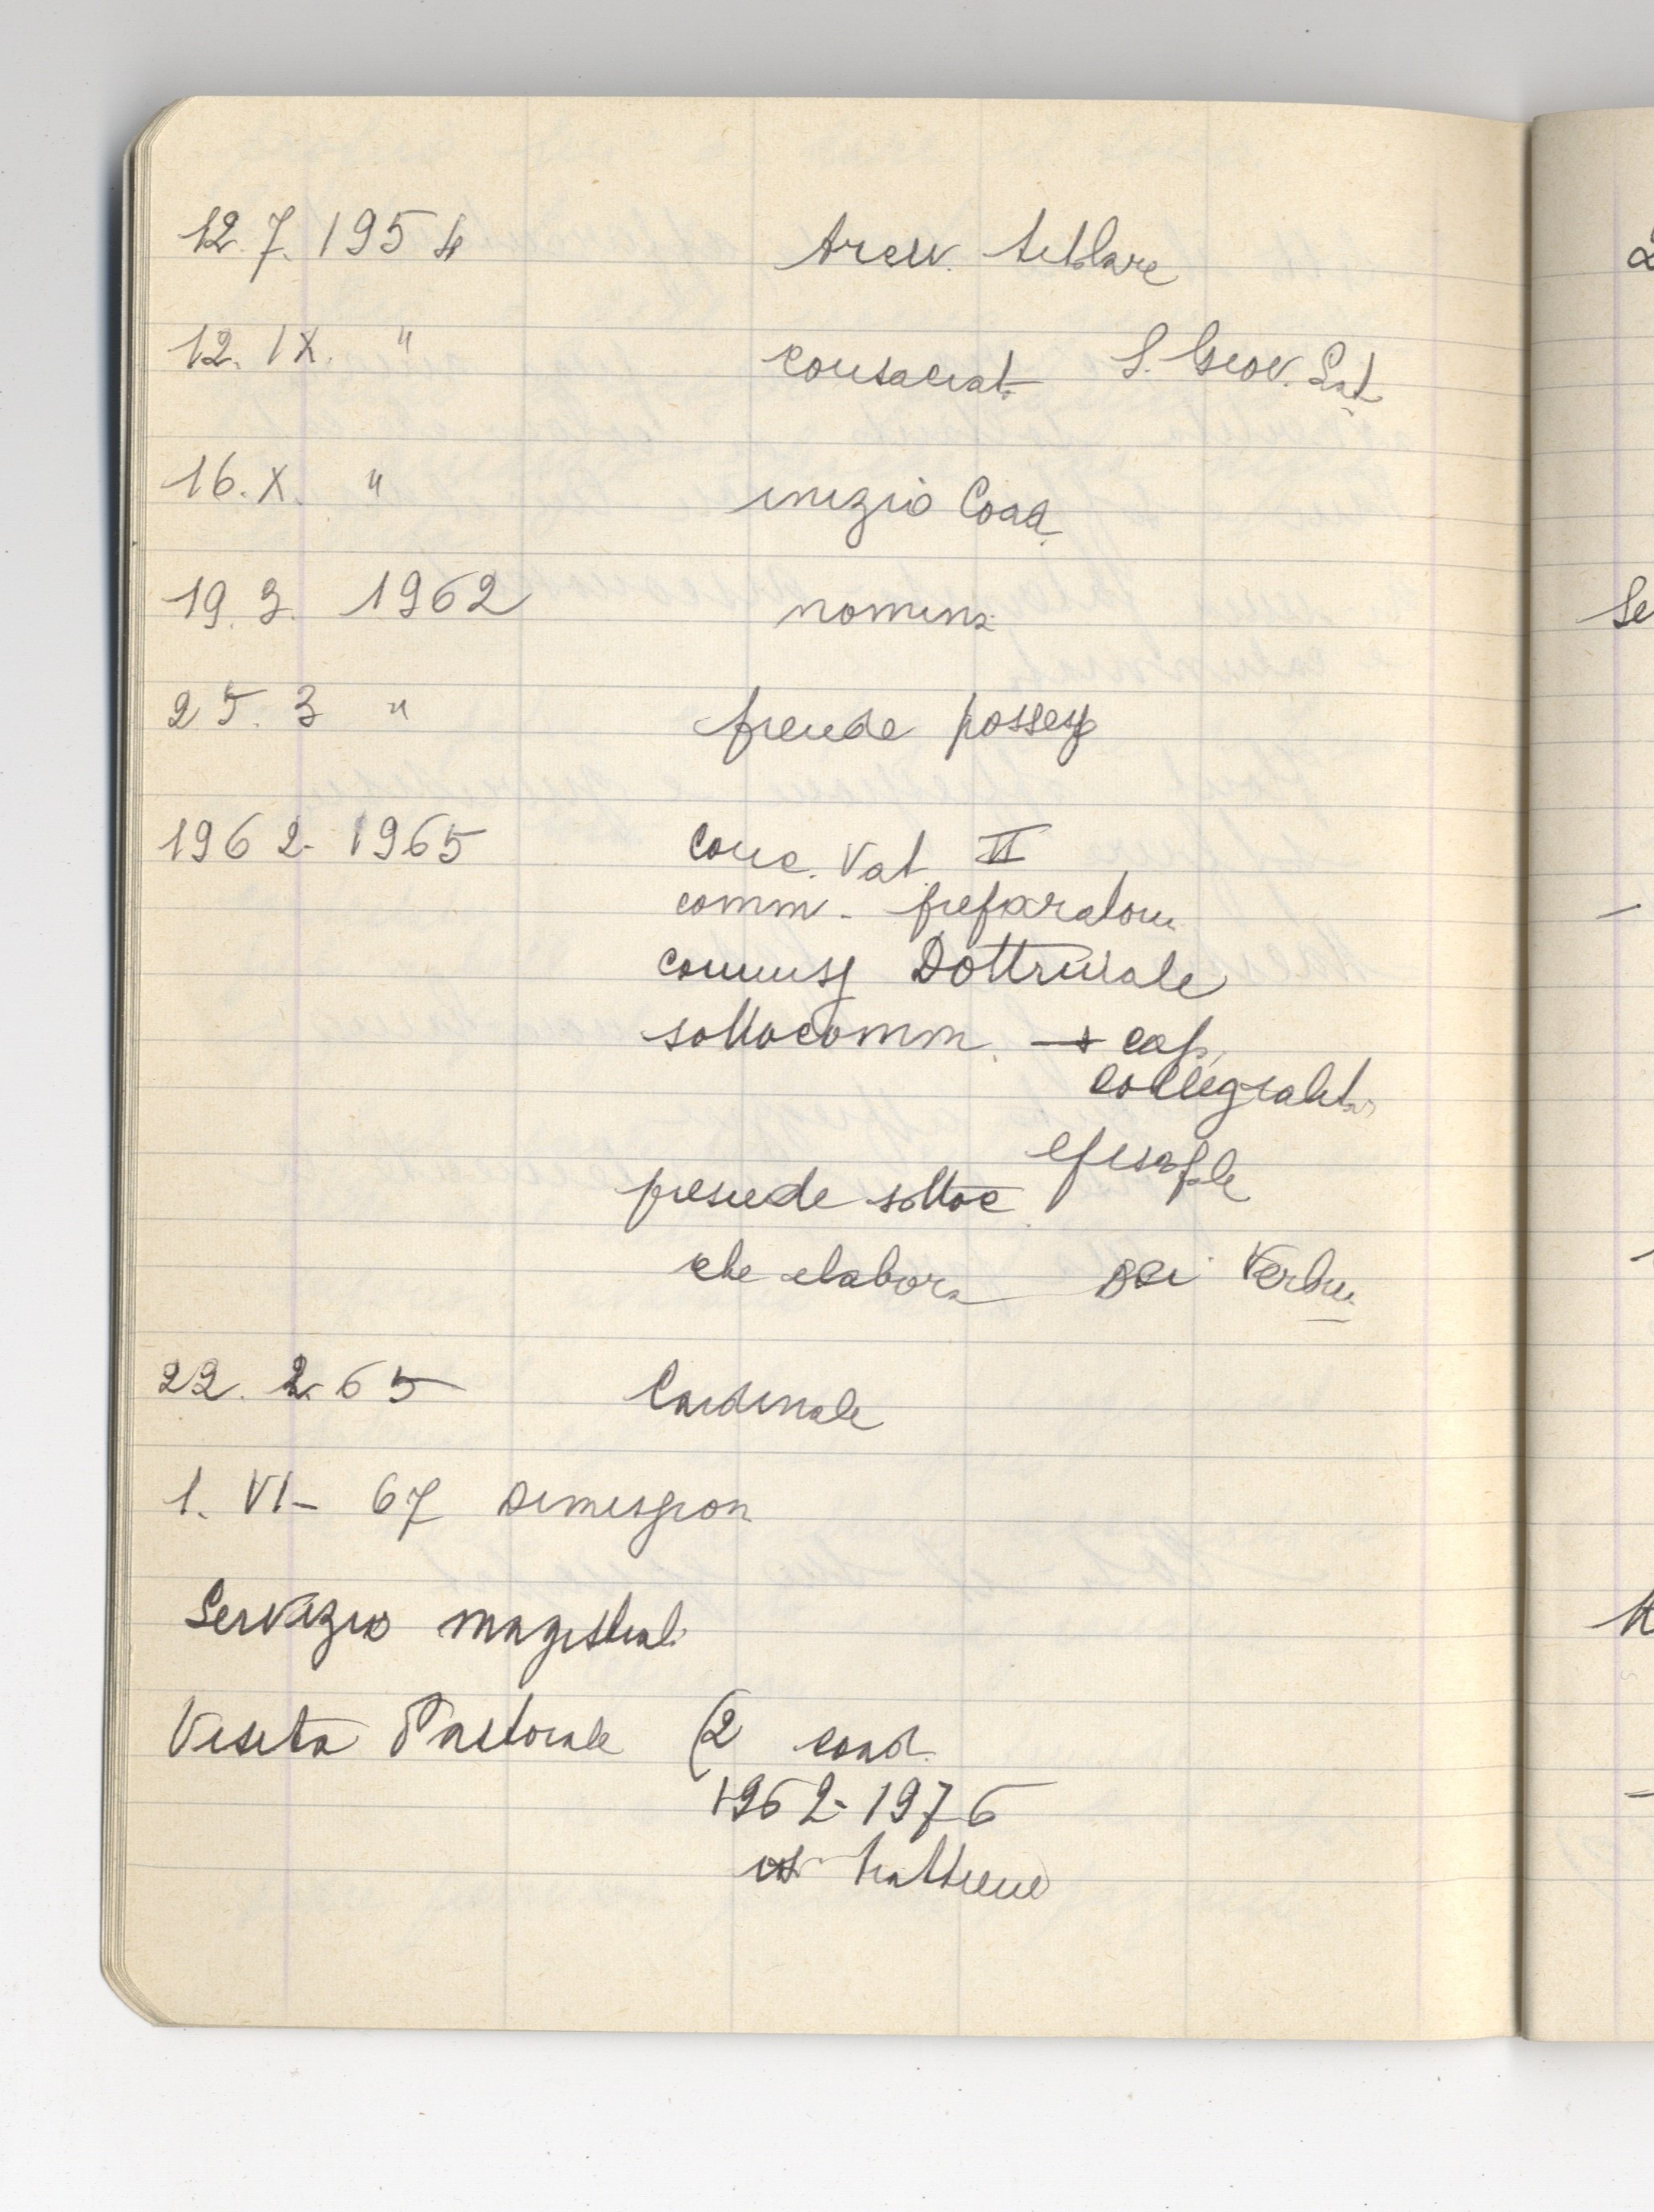 12. 7. 1954 Arciv. titolare
12. IX. " consacrat. S. Giov. Lat.
16. X. " inizio Coad.
19. 3. 1962 nomina
25. 3 " prende possess
1962-1965 Conc. Vat. II
comm. preparator.
commiss Dottrinale
sottocomm. → cap.
collegialità
episcople
presiede sottoc.
che elabora Dei Verbu
22. 2. 65 Cardinale
1. VI - 67 Dimission
Servizio magistral.
Visita Pastorale (2 coad.
1962-1976